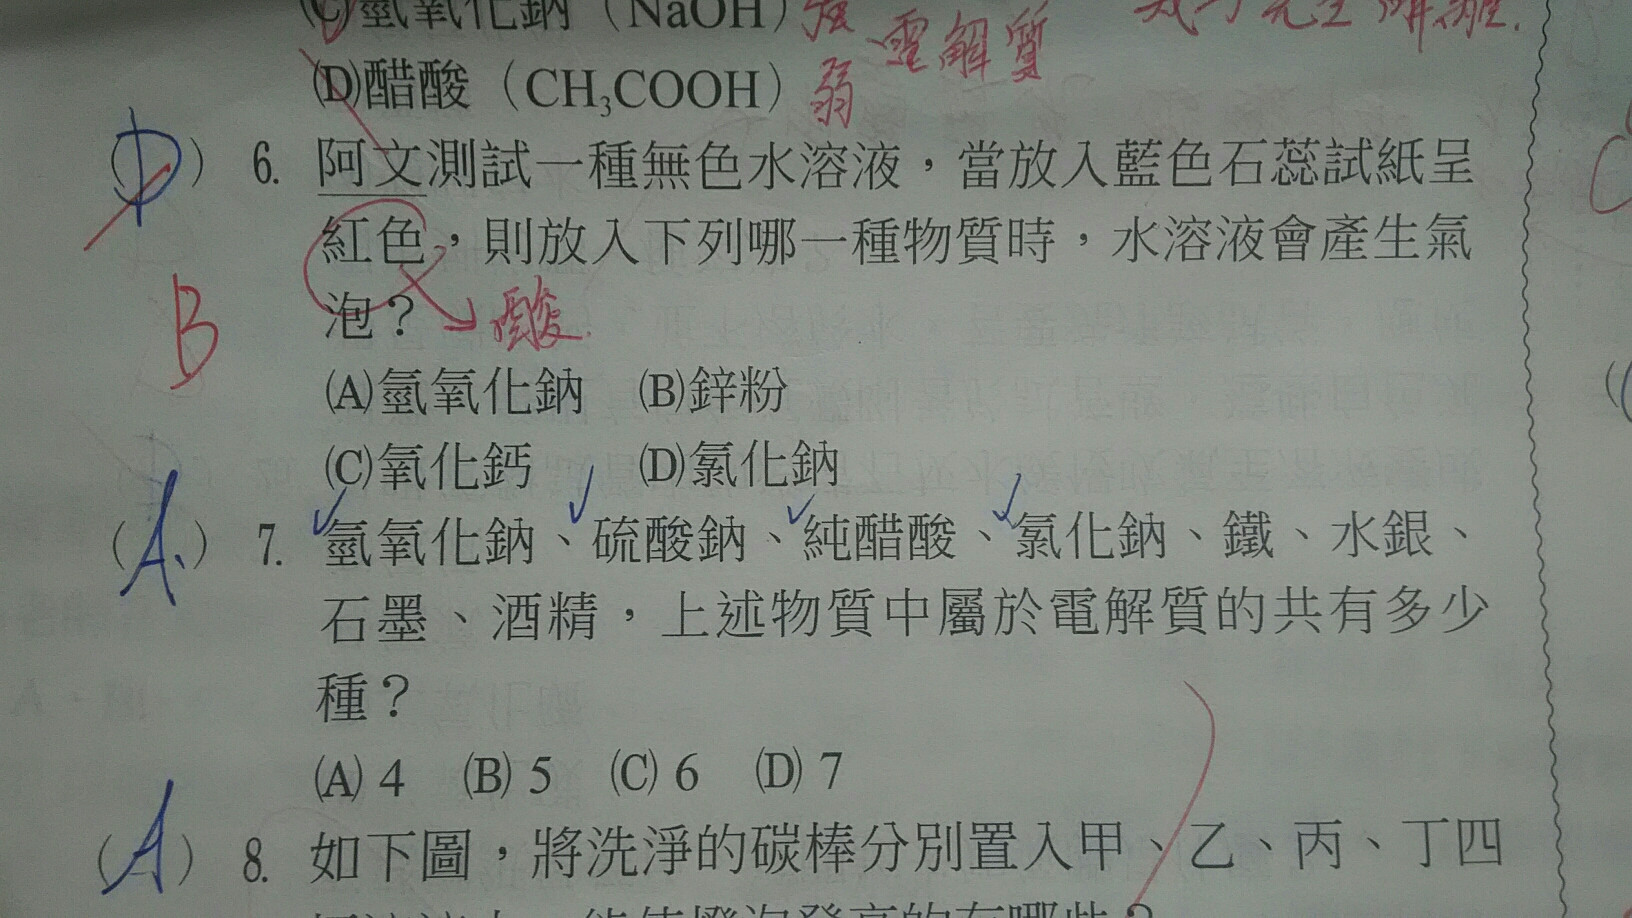 (C)氫氧化鈉（NaOH）強
(D)醋酸（CH₃COOH）弱 電解質
(D) 6. 阿文測試一種無色水溶液，當放入藍色石蕊試紙呈
紅色，則放入下列哪一種物質時，水溶液會產生氣
泡？→酸
B
(A)氫氧化鈉 (B)鋅粉
(C)氧化鈣 (D)氯化鈉
(A.) 7. 氫氧化鈉、硫酸鈉、純醋酸、氯化鈉、鐵、水銀、
石墨、酒精，上述物質中屬於電解質的共有多少
種？
(A) 4 (B) 5 (C) 6 (D) 7
(A) 8. 如下圖，將洗淨的碳棒分別置入甲、乙、丙、丁四